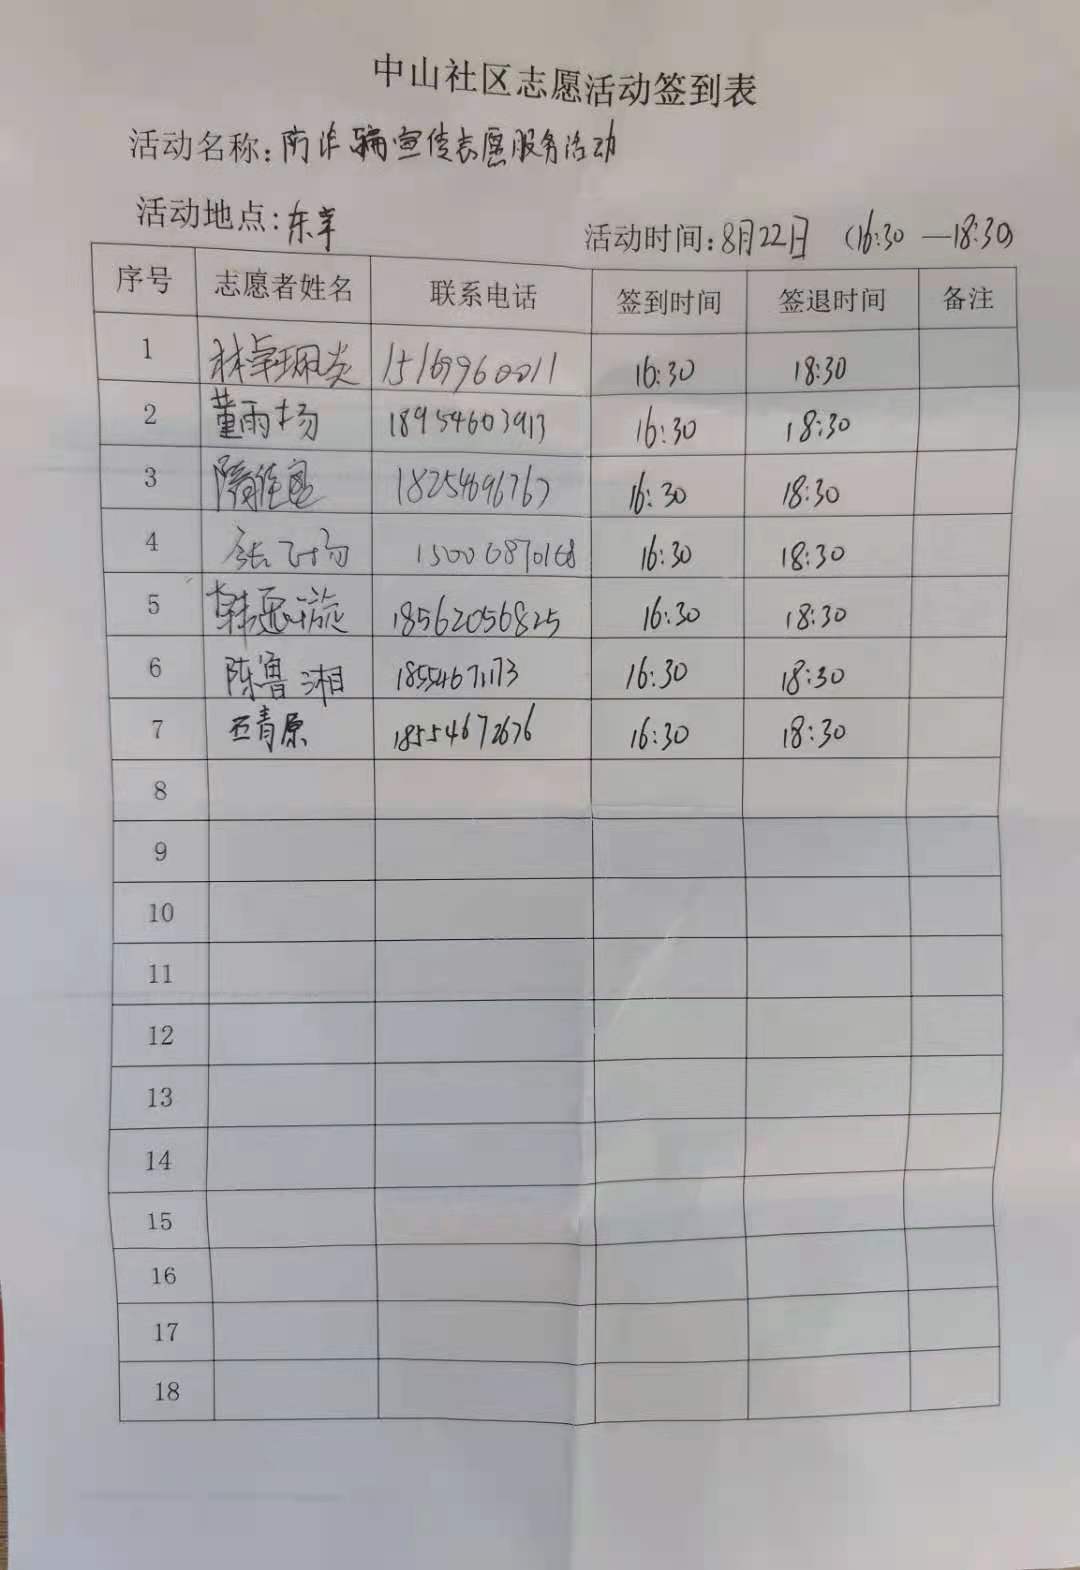 中山社区志愿活动签到表
活动名称:防诈骗宣传志愿服务活动
活动地点:东辛
活动时间:8月22日 (16:30—18:30)
序号 志愿者姓名 联系电话 签到时间 签退时间 备注
1 林卓珮炎 15169960011 16:30 18:30
2 董雨扬 18954603913 16:30 18:30
3 隋佳 18254696767 16:30 18:30
4 张飞扬 15006870168 16:30 18:30
5 韩 璇 18562056825 16:30 18:30
6 陈鲁湘 16:30 18:30
7 青原 18554672676 16:30 18:30
8
9
10
11
12
13
14
15
16
17
18